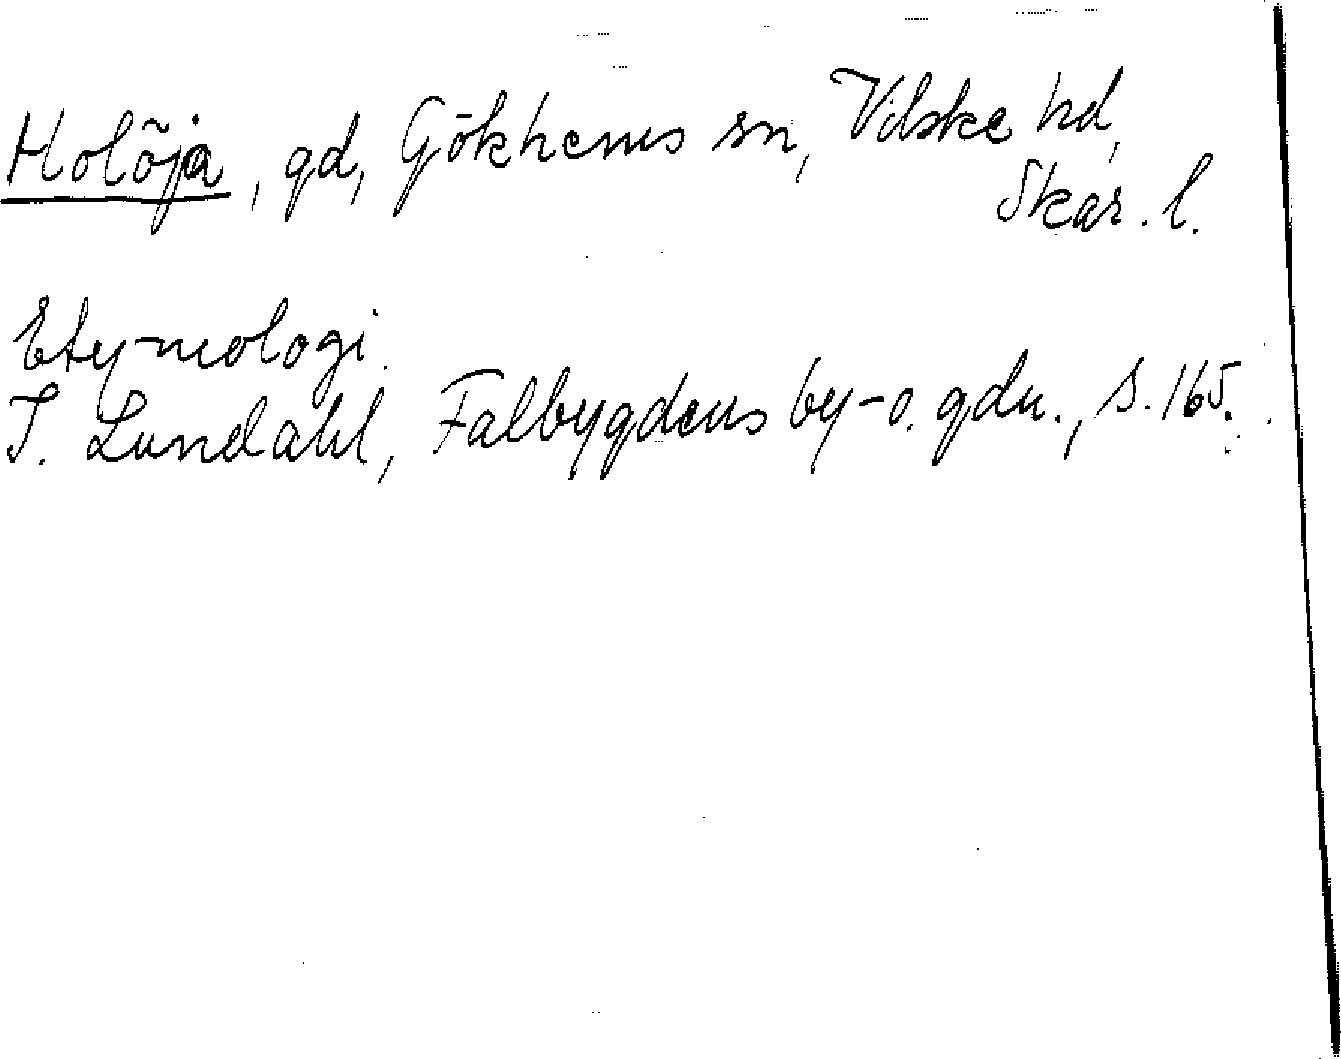 Holöja, gd, Gökhems sn, Vilske hd,
Skar. l.
Etymologi.
I. Lundahl, Falbygdens by- o. gdn., s. 165.